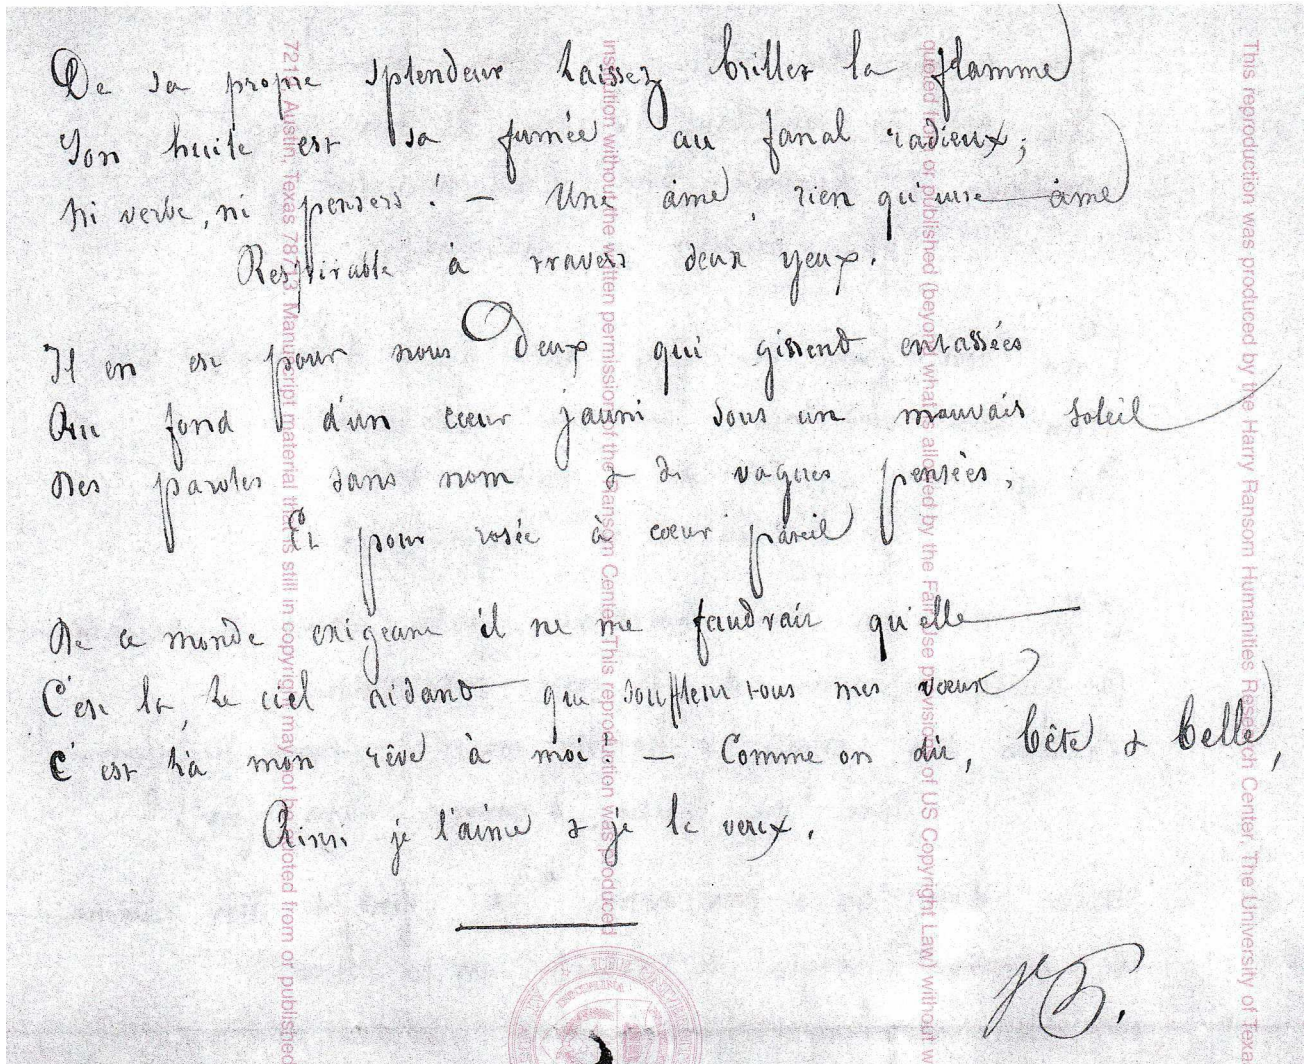 De sa propre splendeur laissez briller la flamme
Son huile est sa fumée au fanal radieux;
Ni verbe, ni pensers! — Une âme, rien qu'une âme
Respirable à travers deux yeux.
Il en est pour nous Deux qui gissent entassées
Au fond d'un cœur jauni sous un mauvais soleil
Des paroles sans nom & de vagues pensées,
Et pour rosée à cœur pareil
De ce monde exigeant il ne me faudrait qu'elle
C'est là, le ciel aidant que soufflent tous mes vœux
C'est là mon rêve à moi. — Comme on dit, bête & belle,
Ainsi je l'aime & je le veux.
This reproduction was produced by the Harry Ransom Humanities Research Center, The University of Texa
quoted f or published (beyond what is allowed by the Fair Use provision of US Copyright Law) without w
institution without the written permission of the Ransom Center. This reproduction was produced
721 Austin, Texas 78713 Manuscript material that is still in copyright may not be quoted from or published